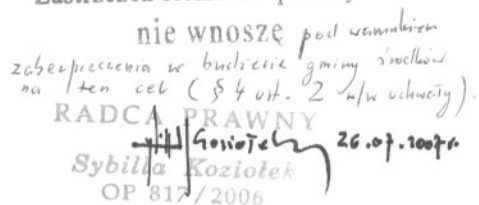 nie wnoszę pod warunkiem
zabezpieczenia w budżecie gminy środków
na ten cel (§ 4 ust. 2 n/w uchwały).
RADCA PRAWNY
Koziołek 26.07.2007r.
Sybilla Koziołek
OP 817/2006